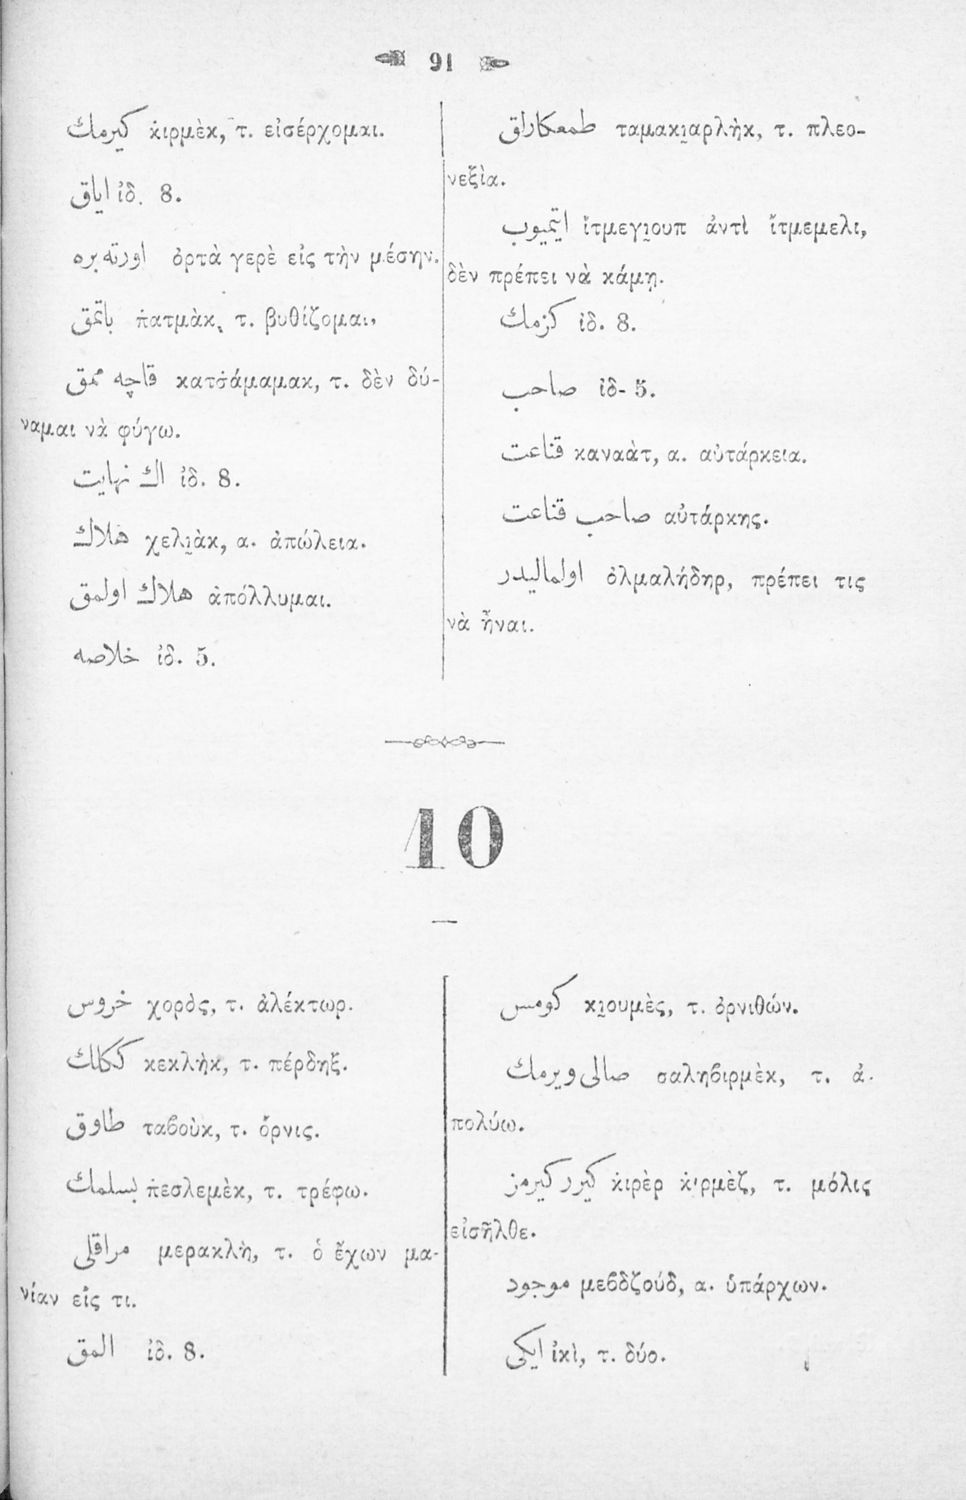 91
كيرمك κιρμὲκ, τ. εἰσέρχομαι.
اياق ἰδ. 8.
اورته يره ὀρτὰ γερὲ εἰς τὴν μέσην.
باتمق πατμὰκ, τ. βυθίζομαι,
قاچه ممق κατσάμαμακ, τ. δὲν δύ-
ναμαι νὰ φύγω.
اك نهايت ἰδ. 8.
هلاك χελι̯ὰκ, α. ἀπώλεια.
هلاك اولمق ἀπόλλυμαι.
خلاصه ἰδ. 5.
طمعكارلق ταμακι̯αρλὴκ, τ. πλεο-
νεξία.
ايتميوب ἰτμεγι̯ουπ ἀντὶ ἴτμεμελι,
δὲν πρέπει νὰ κάμῃ.
كزمك ἰδ. 8.
صاحب ἰδ- 5.
قناعت καναὰτ, α. αὐτάρκεια.
صاحب قناعت αὐτάρκης.
اولماليدر ὀλμαλήδηρ, πρέπει τις
νὰ ἦναι.
10
خروس χορὸς, τ. ἀλέκτωρ.
ككلك κεκλὴκ, τ. πέρδηξ.
طاوق ταβοὺκ, τ. ὄρνις.
بسلمك πεσλεμὲκ, τ. τρέφω.
مراقلى μερακλὴ, τ. ὁ ἔχων μα-
νίαν εἰς τι.
المق ἰδ. 8.
كومس κι̯ουμὲς, τ. ὀρνιθών.
صالى ويرمك σαληβιρμὲκ, τ. ἀ-
πολύω.
كيرر كيرمز κιρὲρ κιρμὲζ, τ. μόλις
εἰσῆλθε.
موجود μεβδζούδ, α. ὑπάρχων.
ايكى ἰκὶ, τ. δύο.